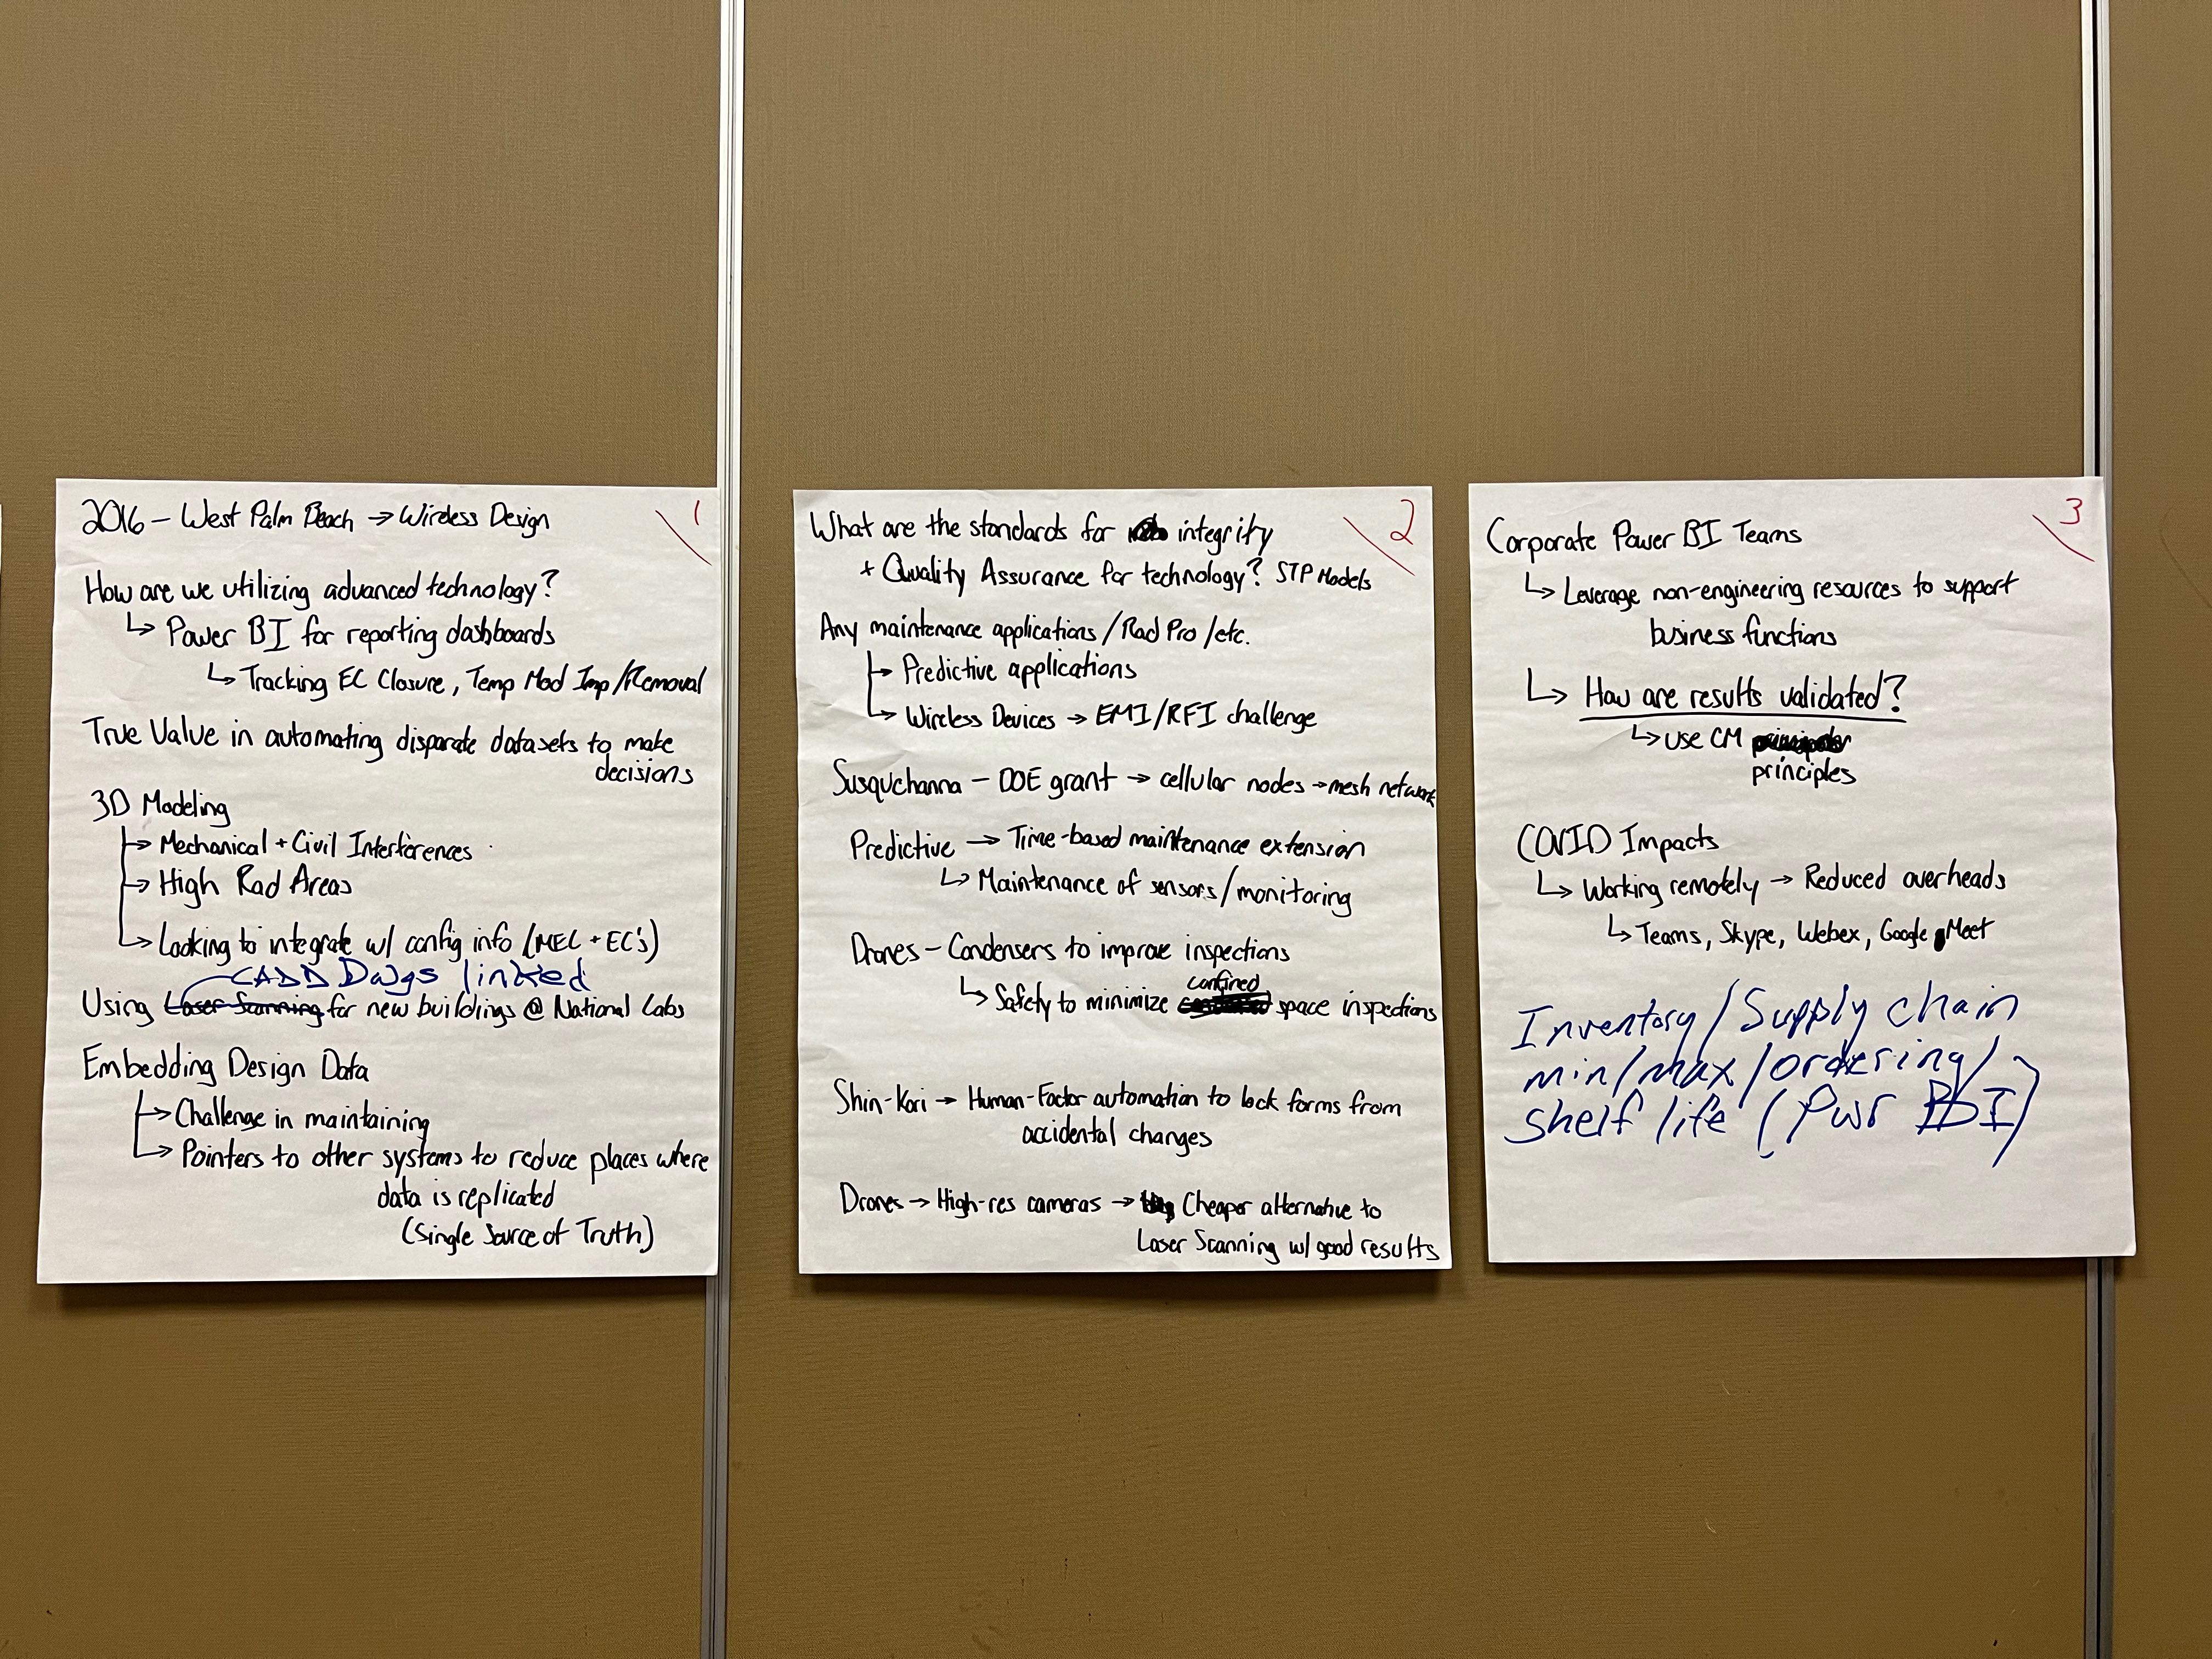 1
2016 – West Palm Beach → Wireless Design
How are we utilizing advanced technology?
↳ Power BI for reporting dashboards
↳ Tracking EC Closure, Temp Mod Imp/Removal
True Value in automating disparate datasets to make
decisions
3D Modeling
→ Mechanical + Civil Interferences
→ High Rad Areas
→ Looking to integrate w/ config info (MEL + EC's)
CADD Dwgs linked
Using Laser Scanning for new buildings @ National Labs
Embedding Design Data
→ Challenge in maintaining
→ Pointers to other systems to reduce places where
data is replicated
(Single Source of Truth)
2
What are the standards for integrity
+ Quality Assurance for technology? STP Models
Any maintenance applications/Rad Pro/etc.
→ Predictive applications
→ Wireless Devices → EMI/RFI challenge
Susquehanna – DOE grant → cellular nodes → mesh network
Predictive → Time-based maintenance extension
↳ Maintenance of sensors/monitoring
Drones – Condensers to improve inspections
confined
↳ Safety to minimize space inspections
Shin-Kori → Human-Factor automation to lock forms from
accidental changes
Drones → High-res cameras → Cheaper alternative to
Laser Scanning w/ good results
3
Corporate Power BI Teams
↳ Leverage non-engineering resources to support
business functions
↳ How are results validated?
↳ use CM
principles
COVID Impacts
↳ Working remotely → Reduced overheads
↳ Teams, Skype, Webex, Google Meet
Inventory/Supply chain
min/max/ordering/
shelf life (Pwr BI)